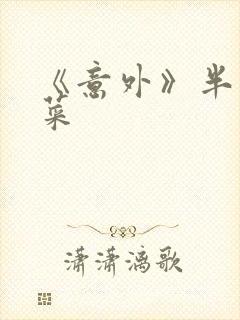 《意外》半
菜
潇潇漓歌